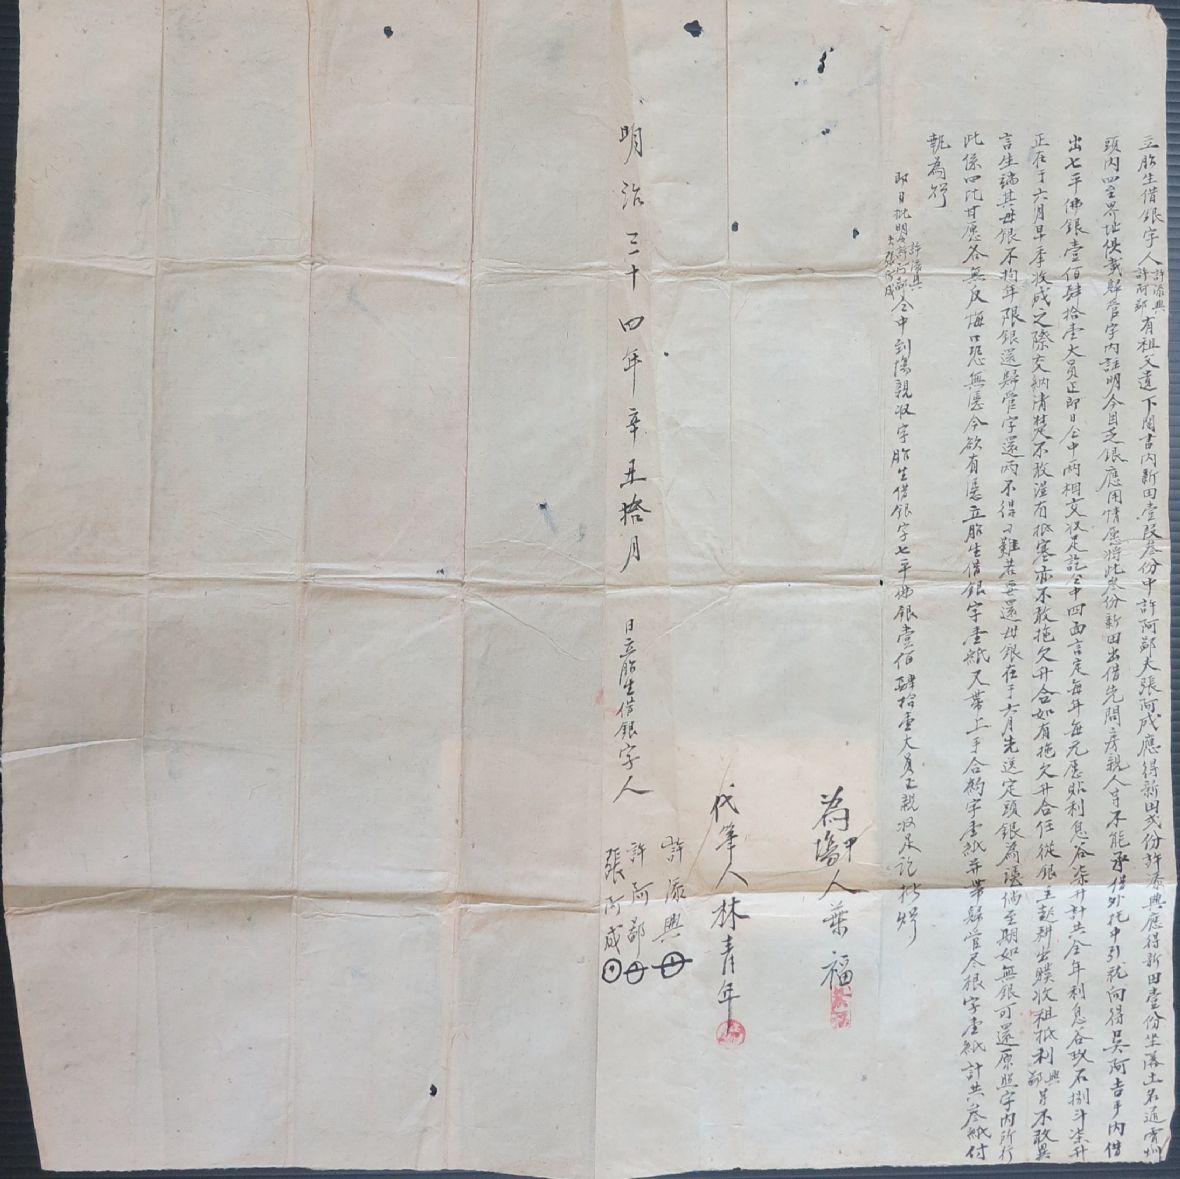 立胎生借銀字人許添興許阿鄒有祖父遺下鬮書內新田壹段叁份中許阿鄒夫張阿成應得新田貳份許添興應得新田壹份坐落土名通霄圳
頭內四至界址俱載歸管字內註明今因乏銀應用情愿將此叁份新田出借先問房親人等不能承借外托中引就向得吳阿吉手內借
出七平佛銀壹佰肆拾壹大員正即日仝中兩相交收足訖仝中四面言定每年每元愿貼利息谷柒升計共全年利息谷玖石捌斗柒升
正在于六月早季收成之際交納清楚不敢濕有抵塞亦不敢拖欠升合如有拖欠升合任從銀主起耕出贌收租抵利興鄒等不敢異
言生端其母銀不拘年限銀還歸管字還兩不得刁難若要還母銀在于六月先送定頭銀為憑倘至期如無銀可還原照字內所行
此係四比甘愿各無反悔口恐無憑今欲有憑立胎生借銀字壹紙又帶上手合約字壹紙并帶歸管盡根字壹紙計共叁紙付
執為炤
即日批明許添興許阿鄒夫張阿成仝中到塲親收字胎生借銀字七平佛銀壹佰肆拾壹大員正親收足訖批炤
為中塲人葉福
代筆人林青年
許添興
明治三十四年辛丑拾月 日立胎生借銀字人許阿鄒
張阿成